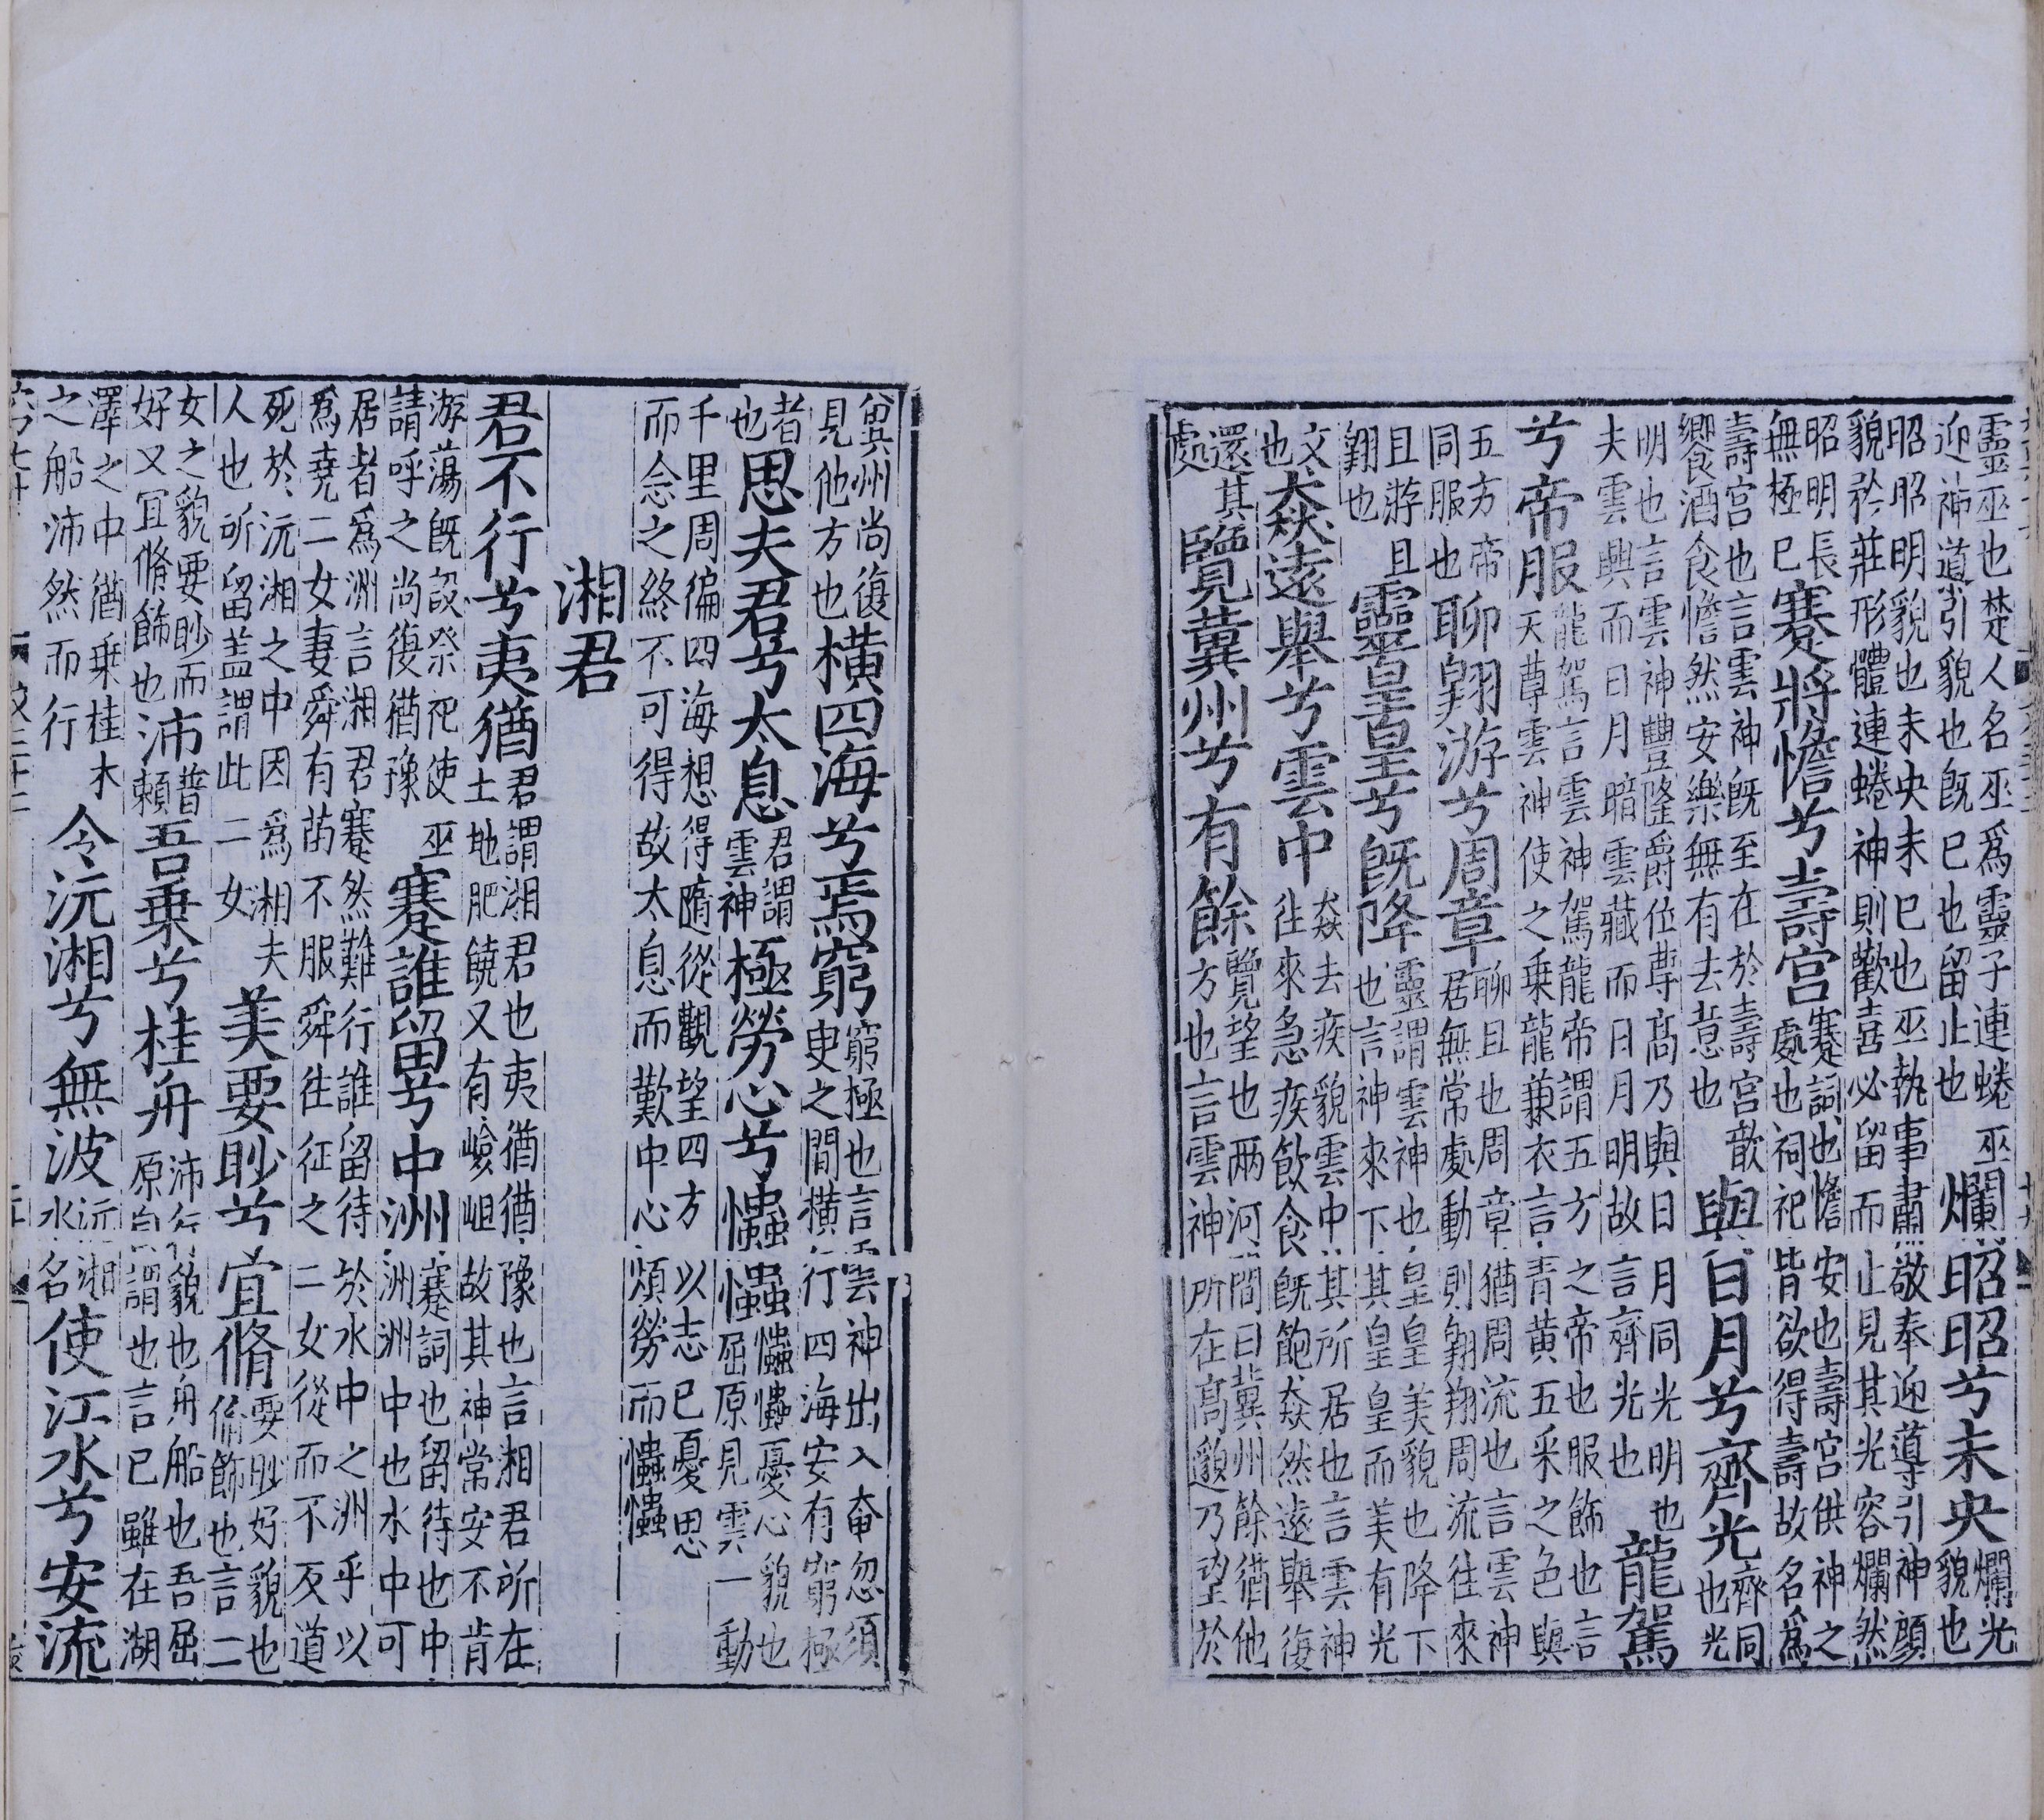 靈巫也楚人名巫爲靈子連蜷巫迎神道引貌也旣已也留止也爛昭昭兮未央爛光貌也
昭昭明貌也未央未已也巫執事肅敬奉迎導引神顔貌矜莊形體連蜷神則歡喜必留而止見其光容爛然
昭明長無極已蹇將憺兮壽宮蹇詞也憺安也壽宮供神之處也祠祀皆欲得壽故名爲
壽宮也言雲神旣至在於壽宮歆饗酒食憺然安樂無有去意也與日月兮齊光齊同也光
明也言雲神豐隆爵位尊高乃與日月同光明也夫雲興而日月暗雲藏而日月明故言齊光也龍駕
兮帝服龍駕言雲神駕龍帝謂五方之帝也服飾也言天尊雲神使之乗龍兼衣言青黃五采之色與
五方帝同服也聊翱游兮周章聊且也周章猶周流也言雲神居無常處動則翱翔周流往來
且游且翱也靈皇皇兮旣降靈謂雲神也皇皇美貌也降下也言神來下其皇皇而美有光
文也猋遠舉兮雲中猋去疾貌雲中其所居也言雲神往來急疾飲食旣飽猋然遠舉復
還其處覽冀州兮有餘覽望也兩河間曰冀州餘猶他方也言雲神所在高邈乃望於
冀州尚復見他方也橫四海兮焉窮窮極也言雲神出入奄忽須臾之間橫行四海安有窮極
者也思夫君兮太息君謂雲神極勞心兮𢥞𢥞𢥞𢥞憂心貌也屈原見雲一動
千里周徧四海想得隨從觀望四方以志已憂思而念之終不可得故太息而歎中心煩勞而𢥞𢥞
湘君
君不行兮夷猶君謂湘君也夷猶猶豫也言湘君所在土地肥饒又有嶮岨故其神常安不肯
游蕩旣設祭祀使巫請呼之尚復猶豫蹇誰留兮中洲蹇詞也留待也中洲洲中也水中可
居者爲洲言湘君蹇然難行誰留待於水中之洲乎以爲堯二女妻舜有苗不服舜往征之二女從而不反道
死於沅湘之中因爲湘夫人也所留蓋謂此二女美要眇兮宜脩要眇好貌也脩飾也言二
女之貌要眇而好又宜脩飾也沛普賴吾乗兮桂舟沛行貌也舟船也吾屈原自謂也言已雖在湖
澤之中猶乗桂木之船沛然而行令沅湘兮無波沅湘水名使江水兮安流